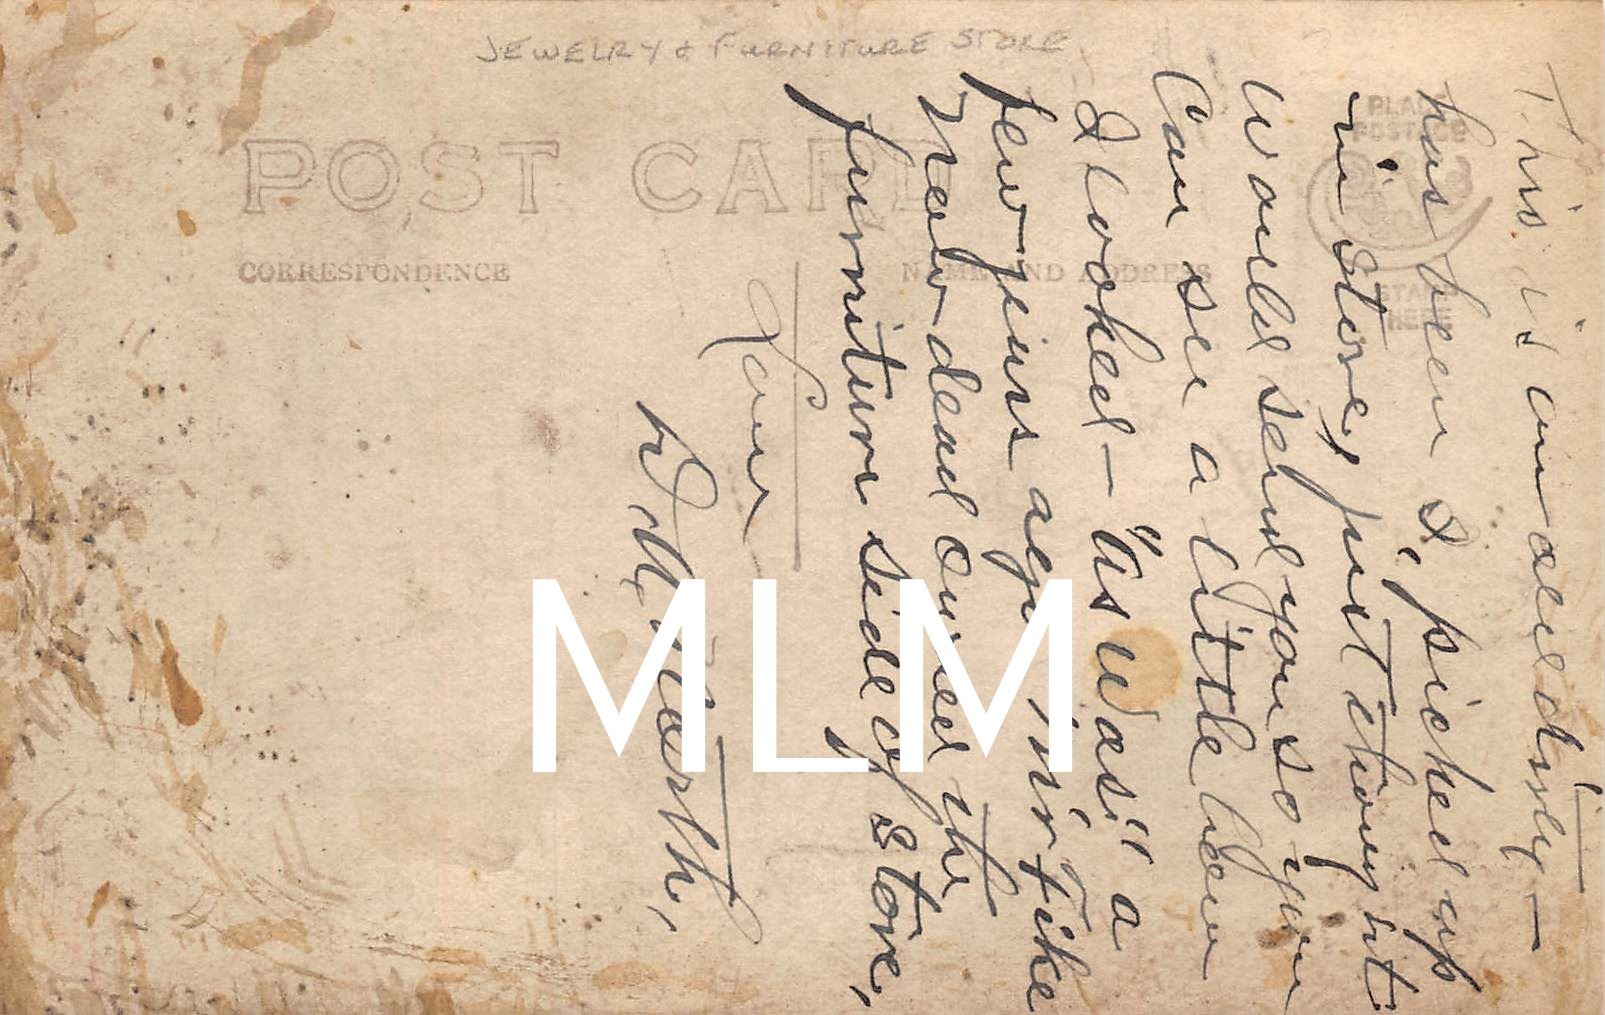 JEWELRY & FURNITURE STORE
POST CARD
CORRESPONDENCE
NAME AND ADDRESS
PLACE
POSTAGE
STAMP
HERE
This is an old dirty —
has been I, picked up
in store, just thought
Would send you so you
Can see a little how
I looked — "as was" a
few years ago Mr Fike
now dead owned the
furniture side of store,
MLM